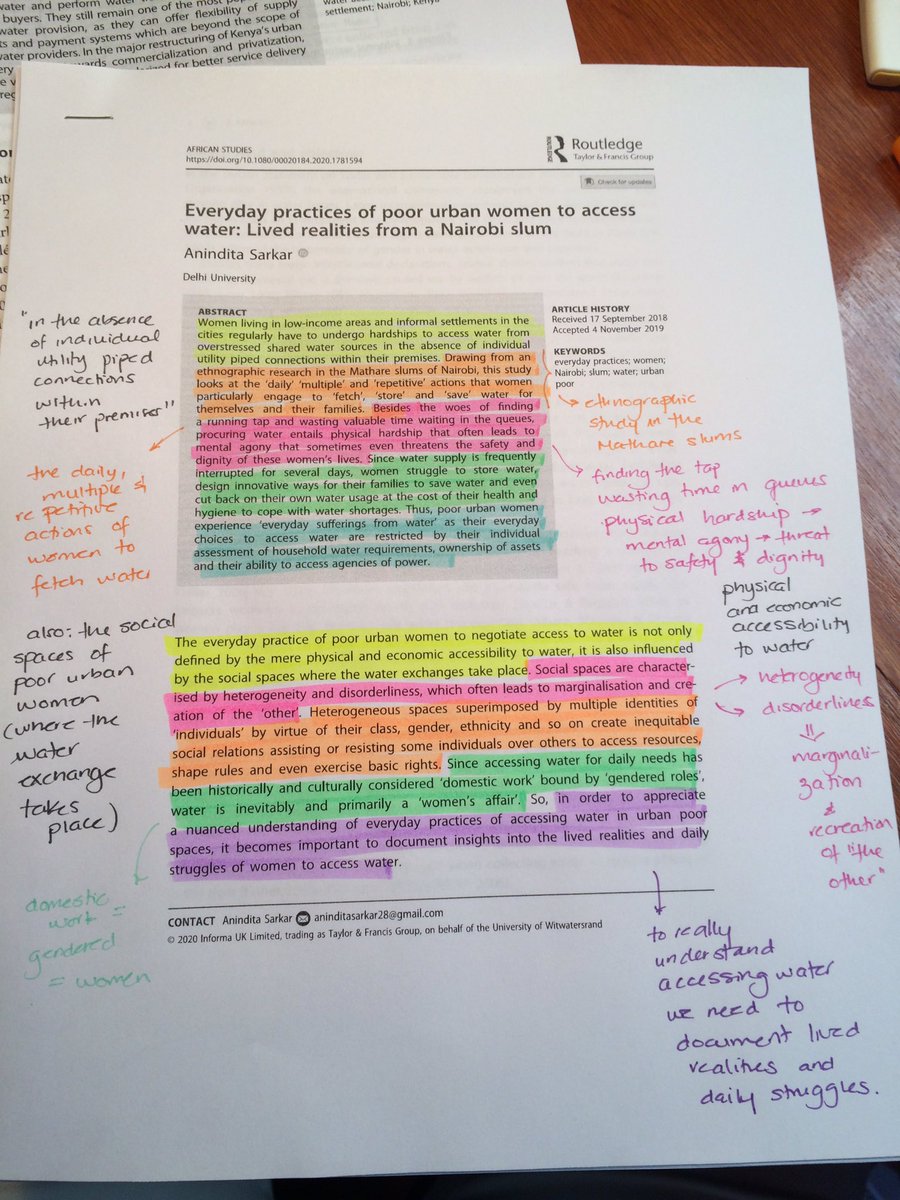 water and perform water
buyers. They still remain one of the most
water provision, as they can offer flexibility of supply
ts and payment systems which are beyond the scope of
water providers. In the major restructuring of Kenya's urban
towards commercialization and privatization,
for better service delivery
settlement; Nairobi; Kenya
AFRICAN STUDIES
https://doi.org/10.1080/00020184.2020.1781594
ROUTLEDGE
Routledge
Taylor & Francis Group
Check for updates
Everyday practices of poor urban women to access
water: Lived realities from a Nairobi slum
Anindita Sarkar
Delhi University
ABSTRACT
Women living in low-income areas and informal settlements in the
cities regularly have to undergo hardships to access water from
overstressed shared water sources in the absence of individual
utility piped connections within their premises. Drawing from an
ethnographic research in the Mathare slums of Nairobi, this study
looks at the 'daily' 'multiple' and 'repetitive' actions that women
particularly engage to 'fetch', 'store' and 'save' water for
themselves and their families. Besides the woes of finding
a running tap and wasting valuable time waiting in the queues,
procuring water entails physical hardship that often leads to
mental agony that sometimes even threatens the safety and
dignity of these women's lives. Since water supply is frequently
interrupted for several days, women struggle to store water,
design innovative ways for their families to save water and even
cut back on their own water usage at the cost of their health and
hygiene to cope with water shortages. Thus, poor urban women
experience 'everyday sufferings from water' as their everyday
choices to access water are restricted by their individual
assessment of household water requirements, ownership of assets
and their ability to access agencies of power.
ARTICLE HISTORY
Received 17 September 2018
Accepted 4 November 2019
KEYWORDS
everyday practices; women;
Nairobi; slum; water; urban
poor
"in the absence
of individual
utility piped
connections
within
their premises"
the daily,
multiple &
repetitive
actions of
women to
fetch water
→ ethnographic
study in the
Mathare slums
finding the tap
wasting time in queues
physical hardship →
mental agony → threat
to safety & dignity
also: the social
spaces of
poor urban
women
(where the
water
exchange
takes
place)
physical
and economic
accessibility
to water
→ heterogeneity
→ disorderliness
⇓
marginali-
zation
&
recreation
of "the
other"
The everyday practice of poor urban women to negotiate access to water is not only
defined by the mere physical and economic accessibility to water, it is also influenced
by the social spaces where the water exchanges take place. Social spaces are character-
ised by heterogeneity and disorderliness, which often leads to marginalisation and cre-
ation of the 'other'. Heterogeneous spaces superimposed by multiple identities of
'individuals' by virtue of their class, gender, ethnicity and so on create inequitable
social relations assisting or resisting some individuals over others to access resources,
shape rules and even exercise basic rights. Since accessing water for daily needs has
been historically and culturally considered 'domestic work' bound by 'gendered roles',
water is inevitably and primarily a 'women's affair'. So, in order to appreciate
a nuanced understanding of everyday practices of accessing water in urban poor
spaces, it becomes important to document insights into the lived realities and daily
struggles of women to access water.
domestic
work =
gendered
= women
to really
understand
accessing water
we need to
document lived
realities and
daily struggles.
CONTACT Anindita Sarkar aninditasarkar28@gmail.com
© 2020 Informa UK Limited, trading as Taylor & Francis Group, on behalf of the University of Witwatersrand